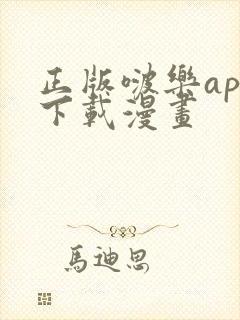 正版啵樂ap
下載漫畫
馬迪思